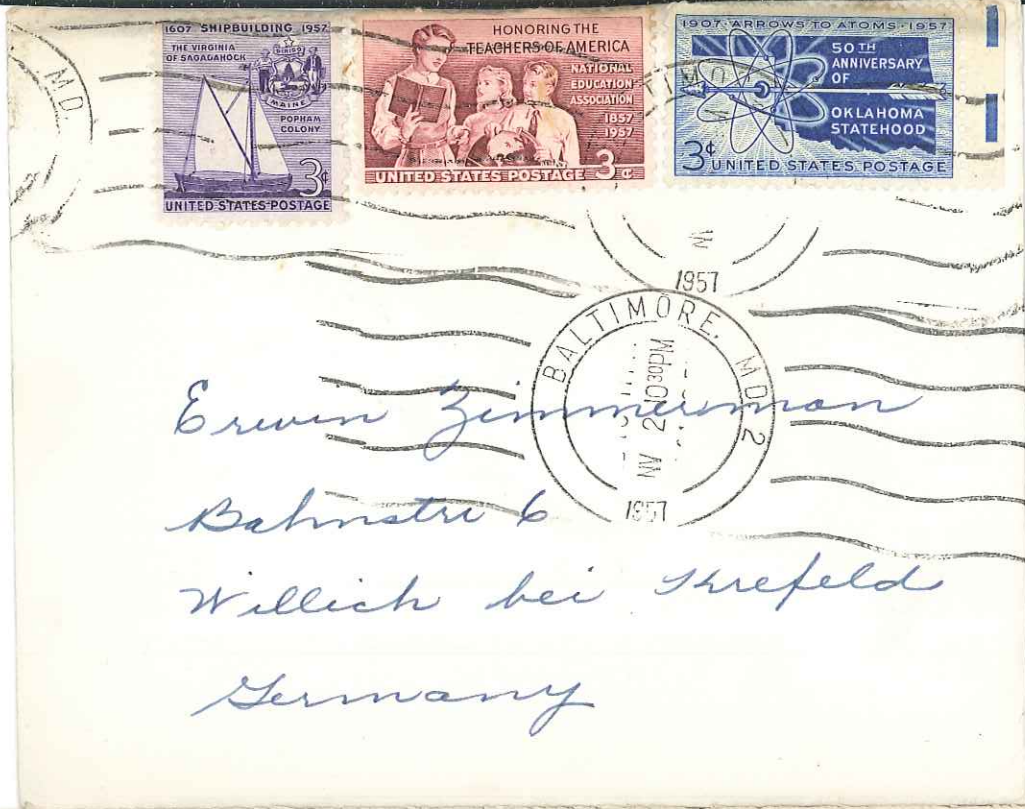 1607 SHIPBUILDING 1957
THE VIRGINIA
OF SAGADAHOCK
DIRIGO
MAINE
POPHAM
COLONY
3¢
UNITED STATES POSTAGE
HONORING THE
TEACHERS OF AMERICA
NATIONAL
EDUCATION
ASSOCIATION
1857
1957
UNITED STATES POSTAGE 3¢
1907·ARROWS TO ATOMS·1957
50TH
ANNIVERSARY
OF
OKLAHOMA
STATEHOOD
3¢ UNITED STATES POSTAGE
MD.
1957
BALTIMORE, MD. 2
NV 2 1030PM
1957
Erwin Zimmerman
Bahnstr 6
Willich bei Krefeld
Germany